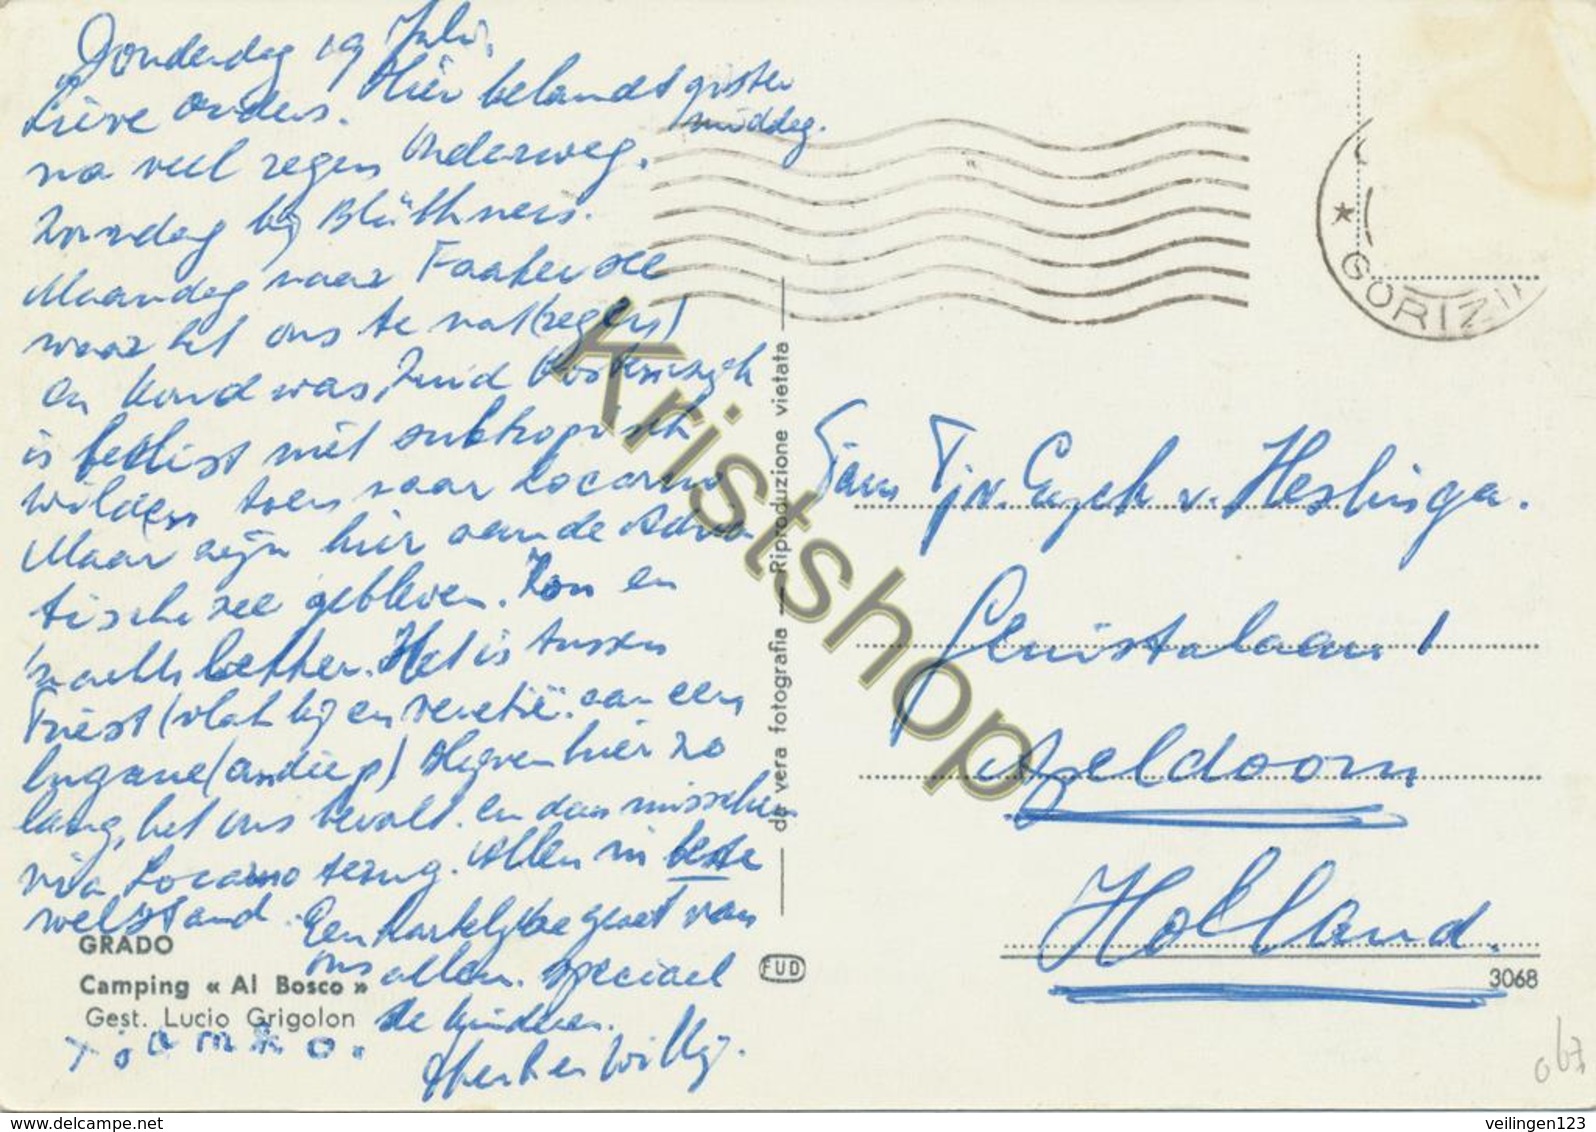 Donderdag 19 Juli.
Lieve ouders. Hier belandt gister
middag.
na veel regen onderweg.
Zondag bij Blüthners.
Maandag naar Faakersee
waar het ons te nat (regen)
en koud was, Zuid Oostenrijk
is beslist niet subtropisch
wilden toen naar Locarno
Maar zijn hier aan de Adria
tische zee gebleven. Zon en
's nachts lekker. Het is tussen
Triest (vlak bij en Venetië. aan een
lagune (ondiep) Blijven hier zo
lang, het ons bevalt. en dan misschien
via Locarno terug. Allen in beste
welstand. Een hartelijke groet van
ons allen. speciaal
de kinderen.
Willy.
GRADO
Camping « Al Bosco »
Gest. Lucio Grigolon
da vera fotografia — Riproduzione vietata
FUD
GORIZI
Fam Tj. v. Eyck v. Heslinga.
Sluistalaan 1
Apeldoorn
Holland.
3068
067
Kristshop
veilingen123